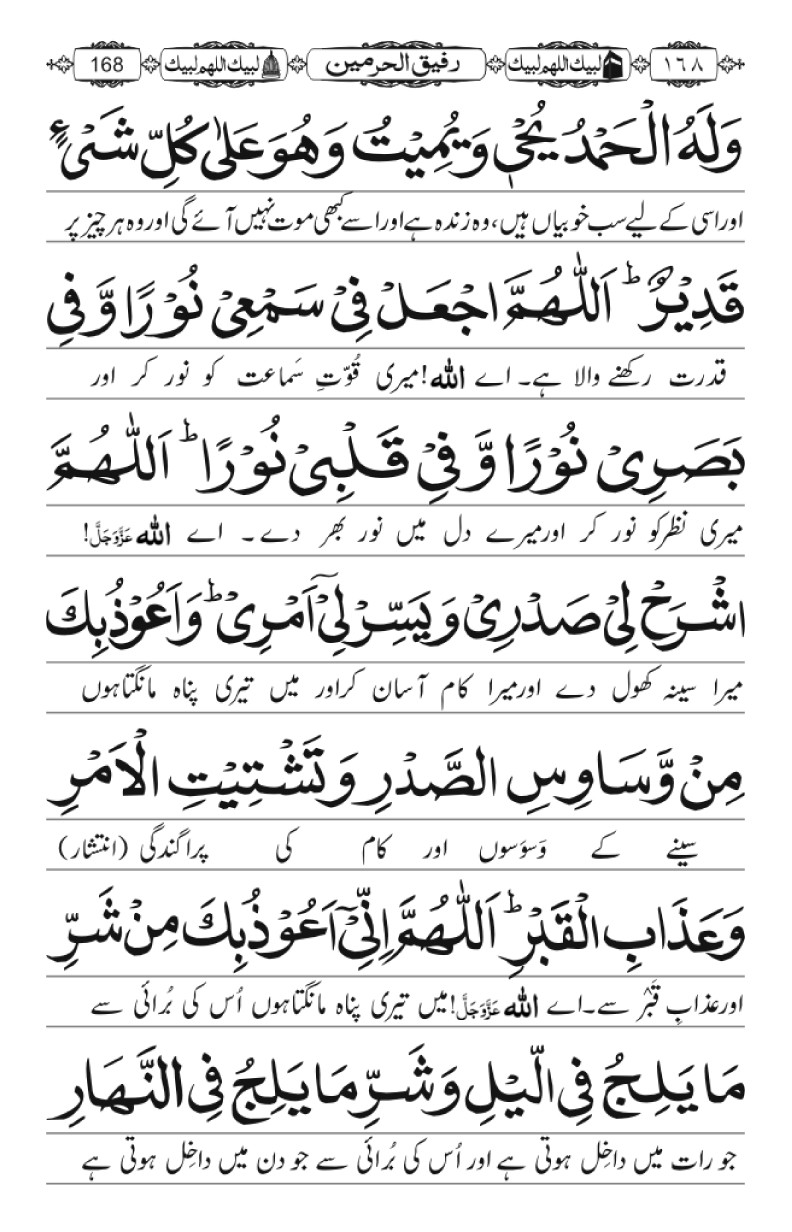 ١٦٨ لبیك اللهم لبیك رفیق الحرمین لبیك اللهم لبیك 168
وَلَهُ الْحَمْدُ یُحْیٖ وَ یُمِیْتُ وَ هُوَ عَلٰی كُلِّ شَیْءٍ
اور اسی کے لیے سب خوبیاں ہیں، وہ زندہ ہے اور اسے کبھی موت نہیں آئے گی اور وہ ہر چیز پر
قَدِیْرٌ ؕ اَللّٰهُمَّ اجْعَلْ فِیْ سَمْعِیْ نُوْرًا وَّ فِیْ
قدرت رکھنے والا ہے۔ اے اللہ! میری قُوّتِ سَماعت کو نور کر اور
بَصَرِیْ نُوْرًا وَّ فِیْ قَلْبِیْ نُوْرًا ؕ اَللّٰهُمَّ
میری نظر کو نور کر اور میرے دل میں نور بھر دے۔ اے اللہ عَزَّوَجَلَّ!
اشْرَحْ لِیْ صَدْرِیْ وَ یَسِّرْ لِیْۤ اَمْرِیْ ؕ وَ اَعُوْذُ بِكَ
میرا سینہ کھول دے اور میرا کام آسان کر اور میں تیری پناہ مانگتا ہوں
مِنْ وَّسَاوِسِ الصَّدْرِ وَ تَشْتِیْتِ الْاَمْرِ
سینے کے وَسوَسوں اور کام کی پراگندگی (انتشار)
وَ عَذَابِ الْقَبْرِ ؕ اَللّٰهُمَّ اِنِّیْۤ اَعُوْذُ بِكَ مِنْ شَرِّ
اور عذابِ قَبْر سے۔ اے اللہ عَزَّوَجَلَّ! میں تیری پناہ مانگتا ہوں اُس کی بُرائی سے
مَا یَلِجُ فِی الَّیْلِ وَ شَرِّ مَا یَلِجُ فِی النَّهَارِ
جو رات میں داخِل ہوتی ہے اور اُس کی بُرائی سے جو دن میں داخِل ہوتی ہے